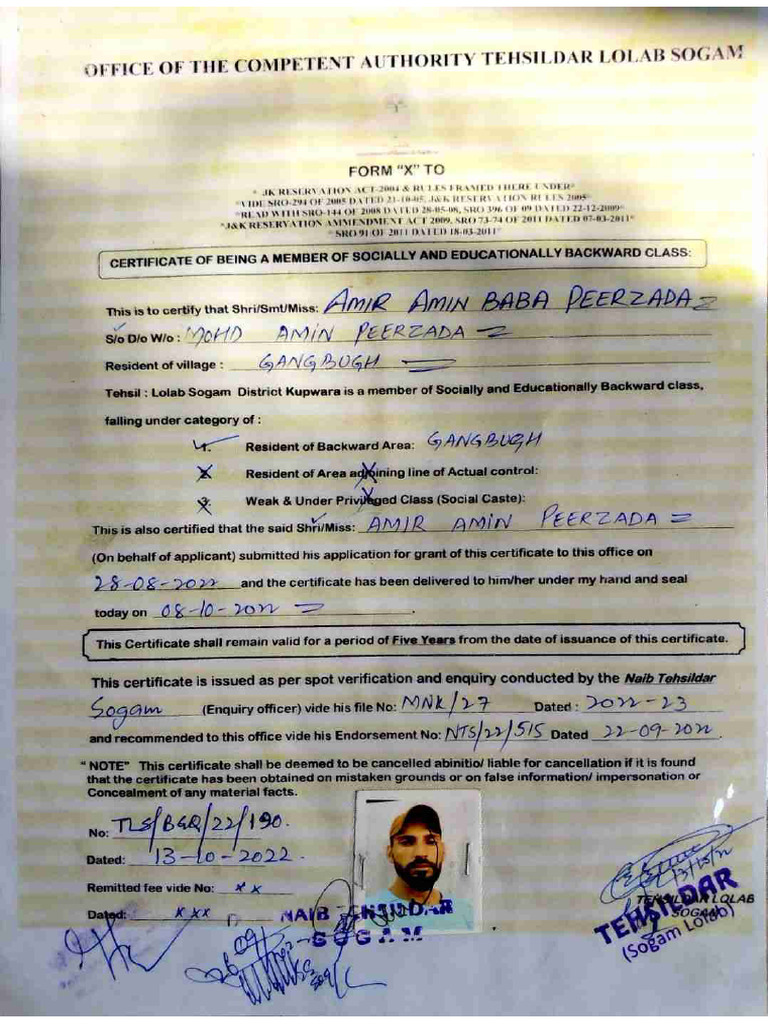 OFFICE OF THE COMPETENT AUTHORITY TEHSILDAR LOLAB SOGAM
FORM "X" TO
" JK RESERVATION ACT-2004 & RULES FRAMED THERE UNDER"
"VIDE SRO-294 OF 2005 DATED 21-10-05, J&K RESERVATION RULES 2005"
"READ WITH SRO-144 OF 2008 DATED 28-05-08, SRO 396 OF 09 DATED 22-12-2009"
"J&K RESERVATION AMMENDMENT ACT 2009, SRO 73-74 OF 2011 DATED 07-03-2011"
"SRO 91 OF 2011 DATED 18-03-2011"
CERTIFICATE OF BEING A MEMBER OF SOCIALLY AND EDUCATIONALLY BACKWARD CLASS:
This is to certify that Shri/Smt/Miss: AMIR AMIN BABA PEERZADA
S/o D/o W/o : MOHD AMIN PEERZADA
Resident of village : GANGBUGH
Tehsil : Lolab Sogam District Kupwara is a member of Socially and Educationally Backward class,
falling under category of :
1. Resident of Backward Area: GANGBUGH
2 Resident of Area adjoining line of Actual control:
3 Weak & Under Privileged Class (Social Caste):
This is also certified that the said Shri/Miss: AMIR AMIN PEERZADA
(On behalf of applicant) submitted his application for grant of this certificate to this office on
28-08-2022 and the certificate has been delivered to him/her under my hand and seal
today on 08-10-2022 .
This Certificate shall remain valid for a period of Five Years from the date of issuance of this certificate.
This certificate is issued as per spot verification and enquiry conducted by the Naib Tehsildar
Sogam (Enquiry officer) vide his file No: MNK/27 Dated : 2022-23
and recommended to this office vide his Endorsement No: NTS/22/515 Dated 22-09-2022.
" NOTE" This certificate shall be deemed to be cancelled abinitio/ liable for cancellation if it is found
that the certificate has been obtained on mistaken grounds or on false information/ impersonation or
Concealment of any material facts.
No: TLS/BGQ/22/190.
Dated: 13-10-2022.
Remitted fee vide No: x x
Dated: x x x
NAIB TEHSILDAR
SOGAM
13/10/22
TEHSILDAR LOLAB
SOGAM
TEHSILDAR
(Sogam Lolab)